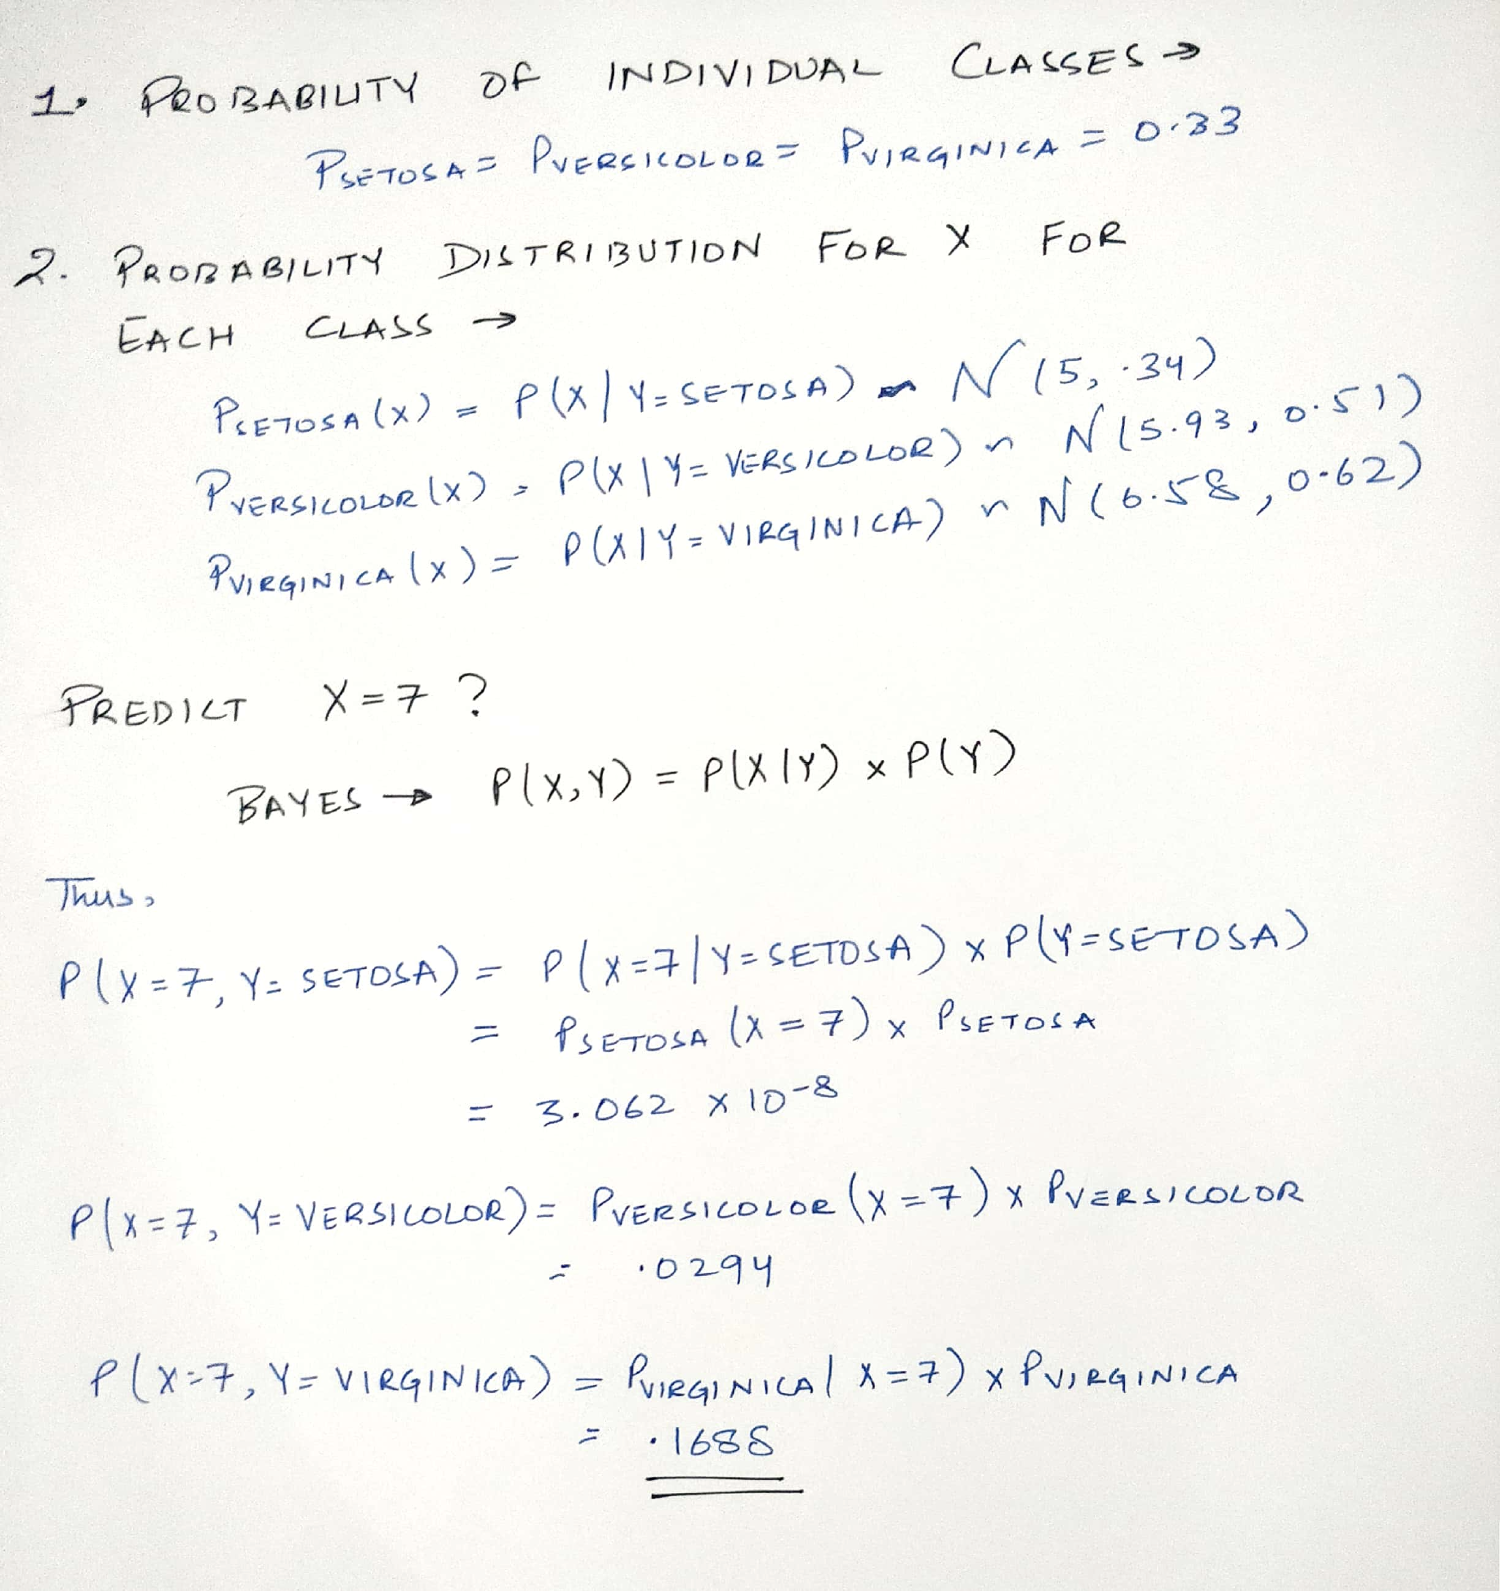 1. PROBABILITY OF INDIVIDUAL CLASSES →
PSETOSA = PVERSICOLOR = PVIRGINICA = 0.33
2. PROBABILITY DISTRIBUTION FOR X FOR
EACH CLASS →
PSETOSA (X) = P(X | Y=SETOSA) ~ N (5, .34)
PVERSICOLOR (X) = P(X | Y= VERSICOLOR) ~ N (5.93, 0.51)
PVIRGINICA (X) = P(X|Y=VIRGINICA) ~ N (6.58, 0.62)
PREDICT X=7 ?
BAYES → P(X,Y) = P(X|Y) x P(Y)
Thus,
P(X=7, Y= SETOSA) = P(X=7|Y=SETOSA) x P(Y=SETOSA)
= PSETOSA (X=7) x PSETOSA
= 3.062 x 10-8
P(X=7, Y= VERSICOLOR) = PVERSICOLOR (X=7) x PVERSICOLOR
= .0294
P(X=7, Y= VIRGINICA) = PVIRGINICA( X=7) x PVIRGINICA
= .1688